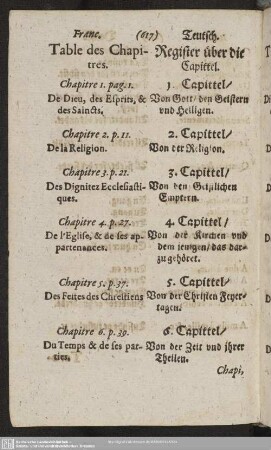 Franc. (617) Teutsch.
Table des Chapi-
tres.
Register über die
Capittel.
Chapitre 1. pag. 1.
De Dieu, des Esprits, &
des Saincts.
1 Capittel/
Von Gott/ den Geistern
vnd Heiligen.
Chapitre 2. p. 11.
De la Religion.
2. Capittel/
Von der Religion.
Chapitre 3. p. 21.
Des Dignitez Ecclesiasti-
ques.
3. Capittel/
Von den Geistlichen
Emptern.
Chapitre 4. p. 27.
De l'Eglise, & de ses ap-
partenances.
4. Capittel/
Von der Kirchen vnd
dem jenigen/ das dar-
zu gehöret.
Chapitre 5. p. 37.
Des Festes des Chrestiens
5. Capittel/
Von der Christen Feyer-
tagen.
Chapitre 6. p. 39.
Du Temps & de ses par-
ties.
6. Capittel/
Von der Zeit vnd ihrer
Theilen.
Chapi,